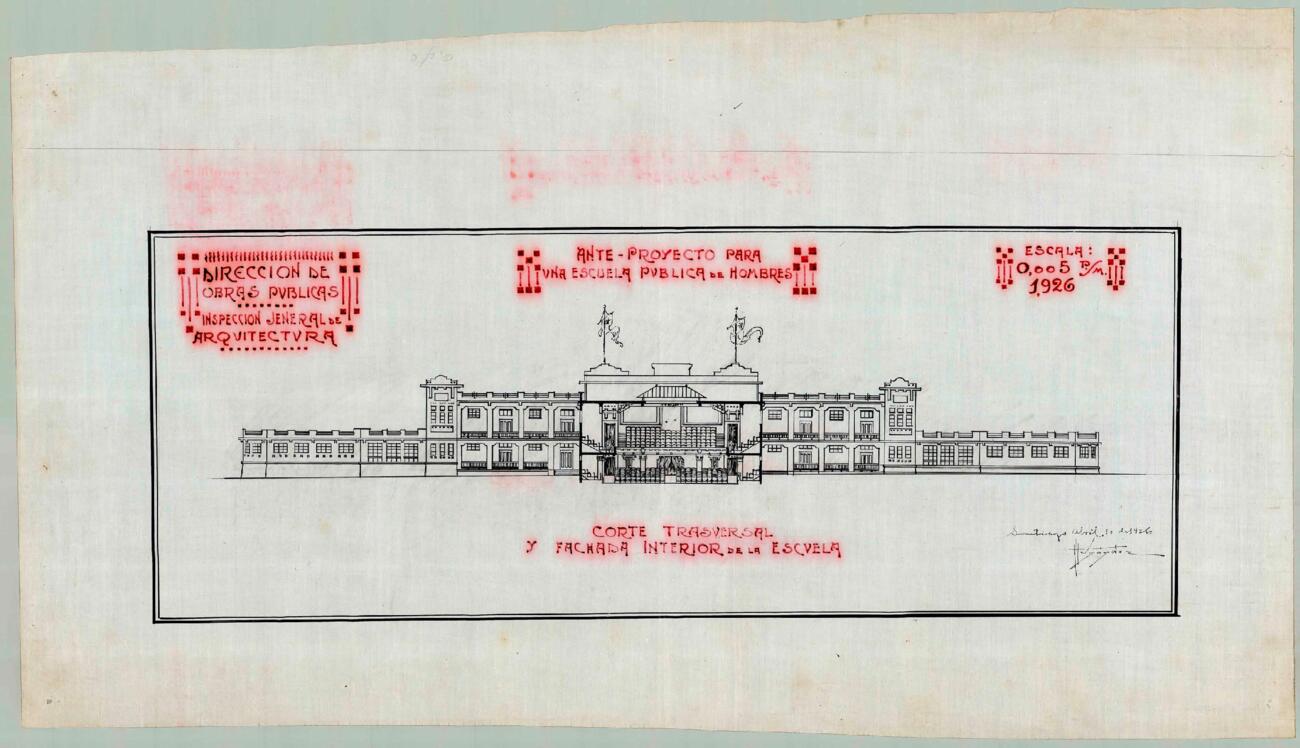 DIRECCION DE
OBRAS PVBLICAS
INSPECCION JENERAL DE
ARQUITECTVRA
ANTE-PROYECTO PARA
VNA ESCUELA PVBLICA DE HOMBRES
ESCALA:
0,005 P/M.
1,926
CORTE TRASVERSAL
Y FACHADA INTERIOR DE LA ESCVELA
Santiago Abril 10 de 1926